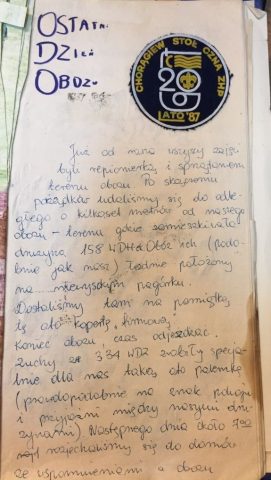 OSTATNI
DZIEŃ
OBOZU
CHORĄGIEW STOŁECZNA ZHP
20
LATO '87
Już od rana wszyscy zajęci
byli repionierką i sprzątaniem
terenu obozu. Po skończeniu
porządków udaliśmy się do odle-
głego o kilkaset metrów od naszego
obozu - terenu gdzie zamieszkiwała
drużyna 158 WDH & Obóz ich (podo-
bnie jak nasz) ładnie położony
na niewysokim pagórku.
Dostaliśmy tam na pamiątkę
tę oto kopertę firmową.
Koniec obozu, czas odjeżdżać.
Zuchy z 334 WDZ zrobiły specja-
lnie dla nas taką oto palemkę
(prawdopodobnie na znak pokoju
i przyjaźni między naszymi dru-
żynami). Następnego dnia około
rozjechaliśmy się do domów
ze wspomnieniami z obozu